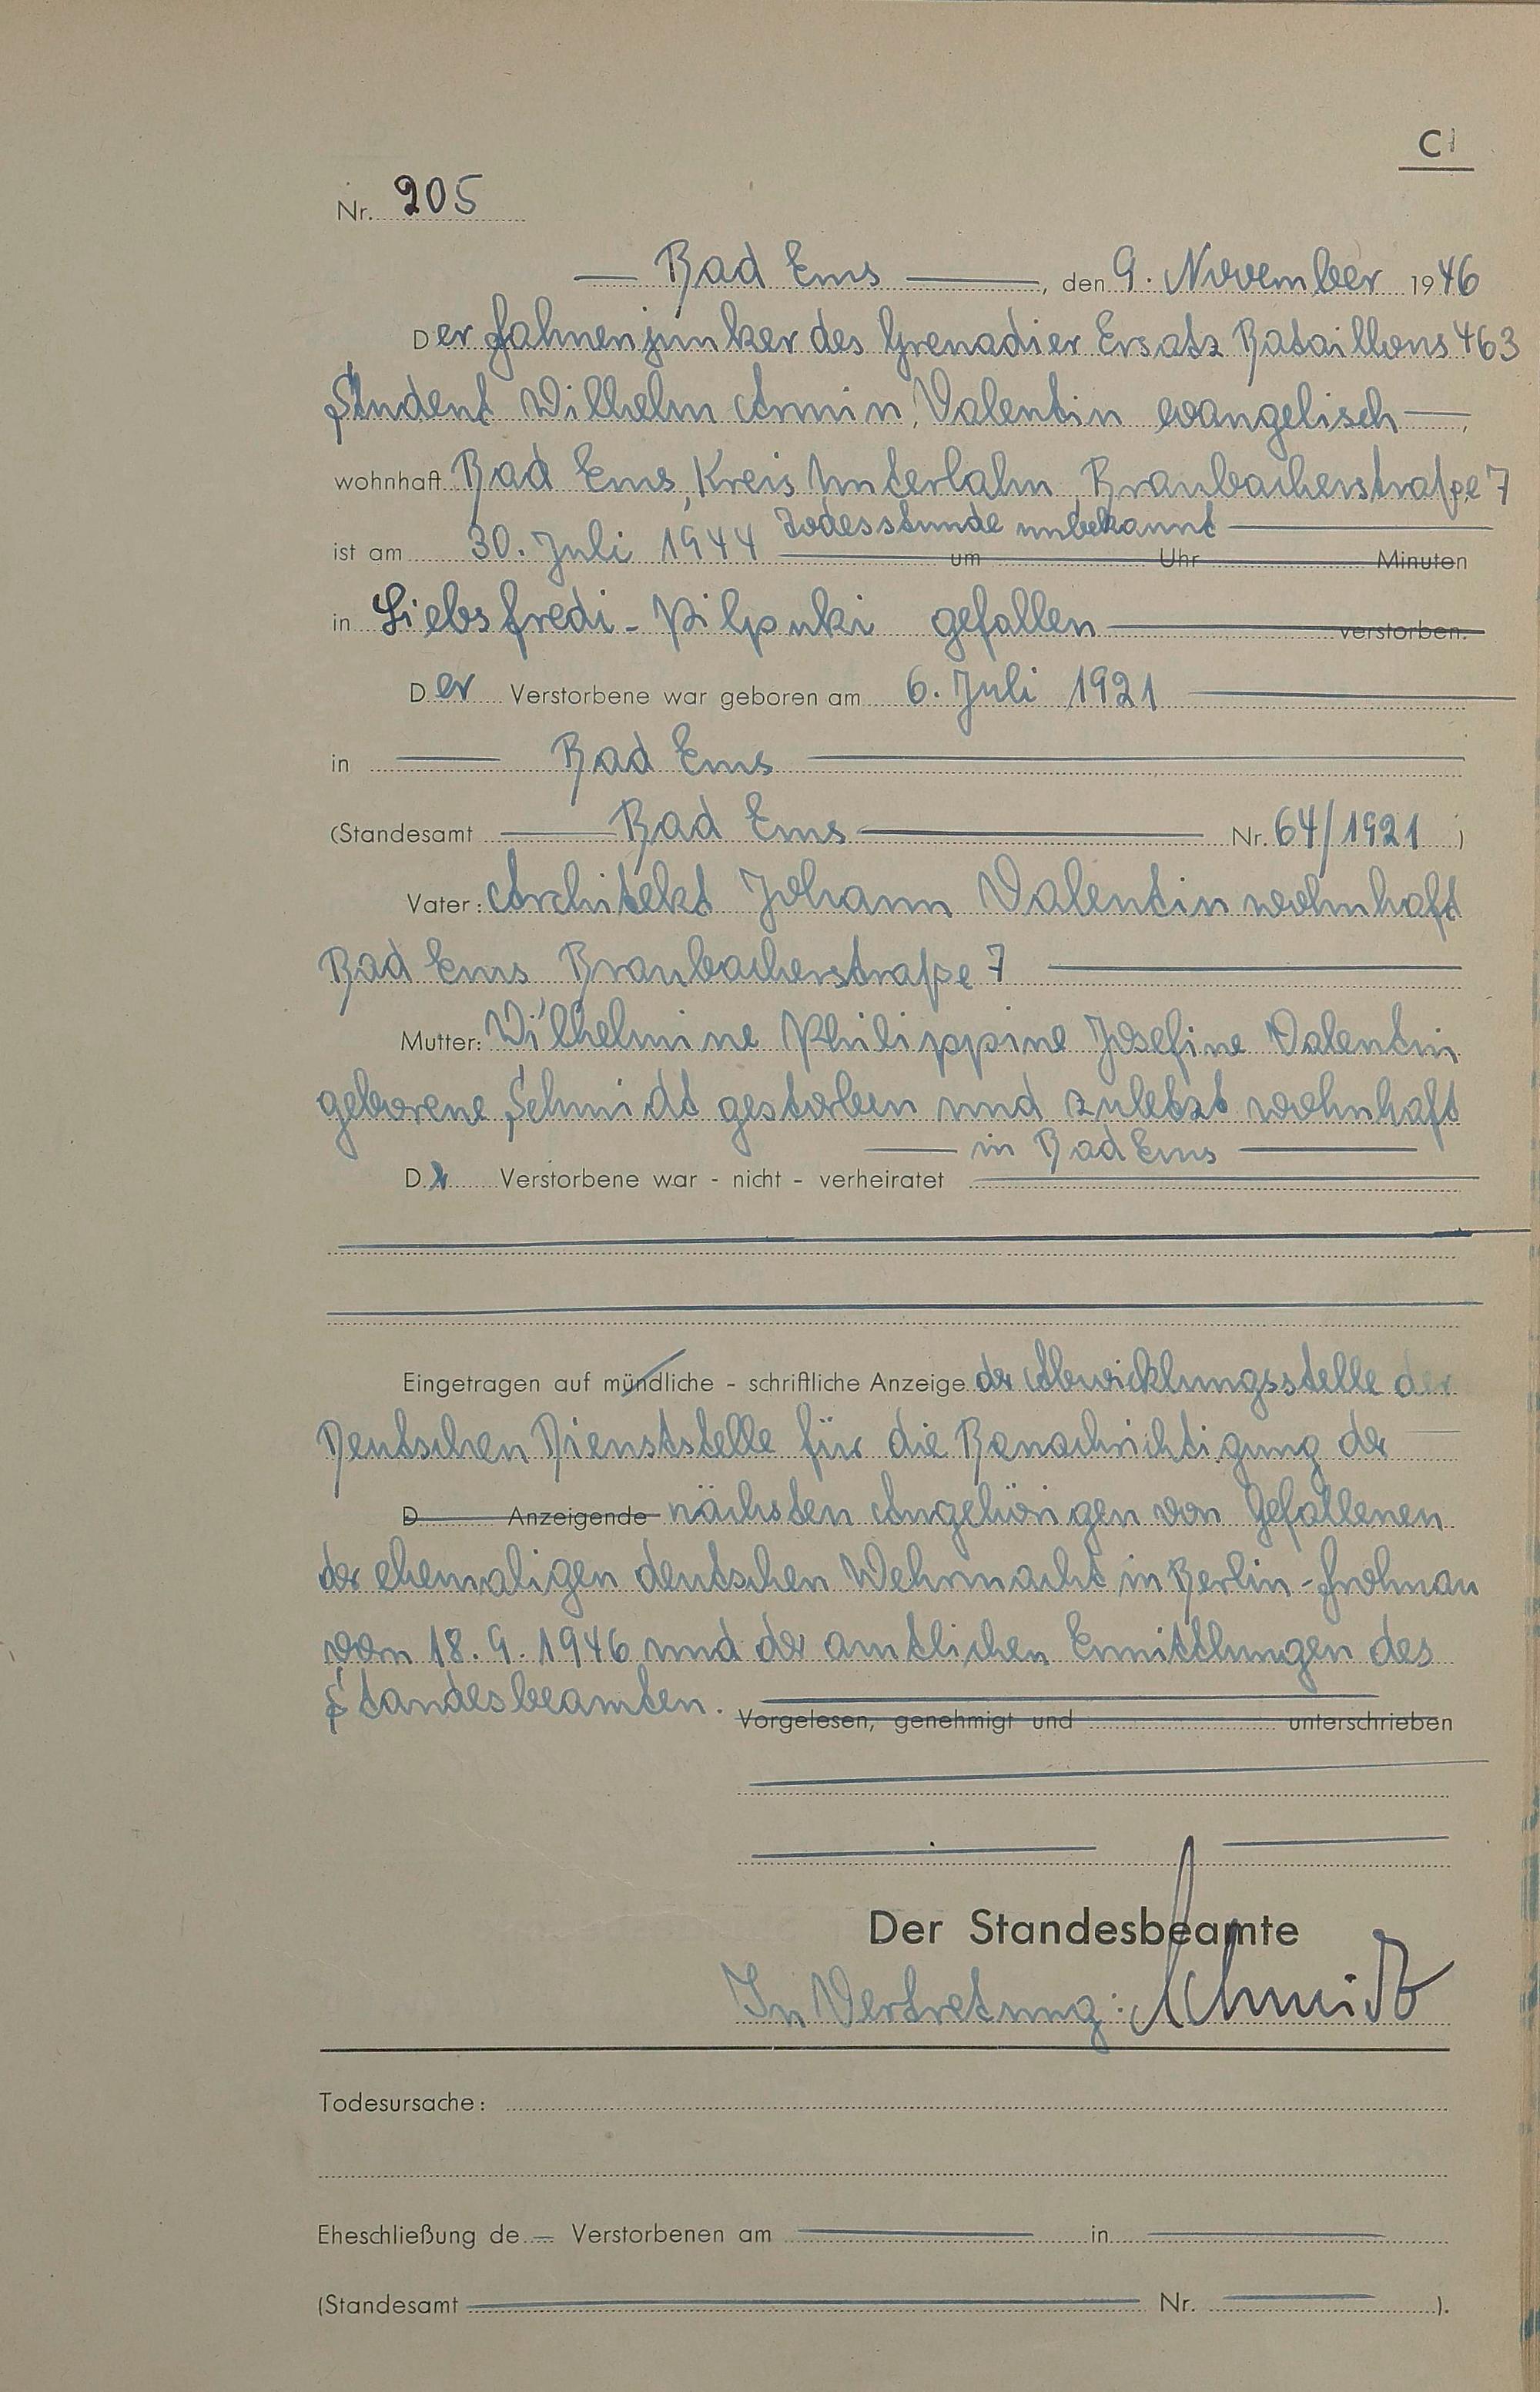 C
Nr. 205
Bad Ems, den 9. November 1946
Der Fahnenjunker des Grenadier Ersatz Bataillons 463
Student Wilhelm Armin Valentin evangelisch,
wohnhaft Bad Ems, Kreis Unterlahn, Braubacherstraße 7
Todesstunde unbekannt
ist am 30. Juli 1944 um Uhr Minuten
in Siebsfredi-Pilpuki gefallen verstorben.
Der Verstorbene war geboren am 6. Juli 1921
in Bad Ems
(Standesamt Bad Ems Nr. 64/1921)
Vater: Architekt Johann Valentin wohnhaft
Bad Ems Braubacherstraße 7
Mutter: Wilhelmine Philippine Josefine Valentin
geborene Schmidt gestorben und zuletzt wohnhaft
in Bad Ems
Der Verstorbene war - nicht - verheiratet
Eingetragen auf mündliche - schriftliche Anzeige der Abwicklungsstelle der
Deutschen Dienststelle für die Benachrichtigung der
D Anzeigende nächsten Angehörigen von Gefallenen
der ehemaligen deutschen Wehrmacht in Berlin-Frohnau
vom 18.9.1946 und der amtlichen Ermittlungen des
Standesbeamten.
Vorgelesen, genehmigt und unterschrieben
Der Standesbeamte
In Vertretung: Schmidt
Todesursache:
Eheschließung de Verstorbenen am in
(Standesamt Nr. ).